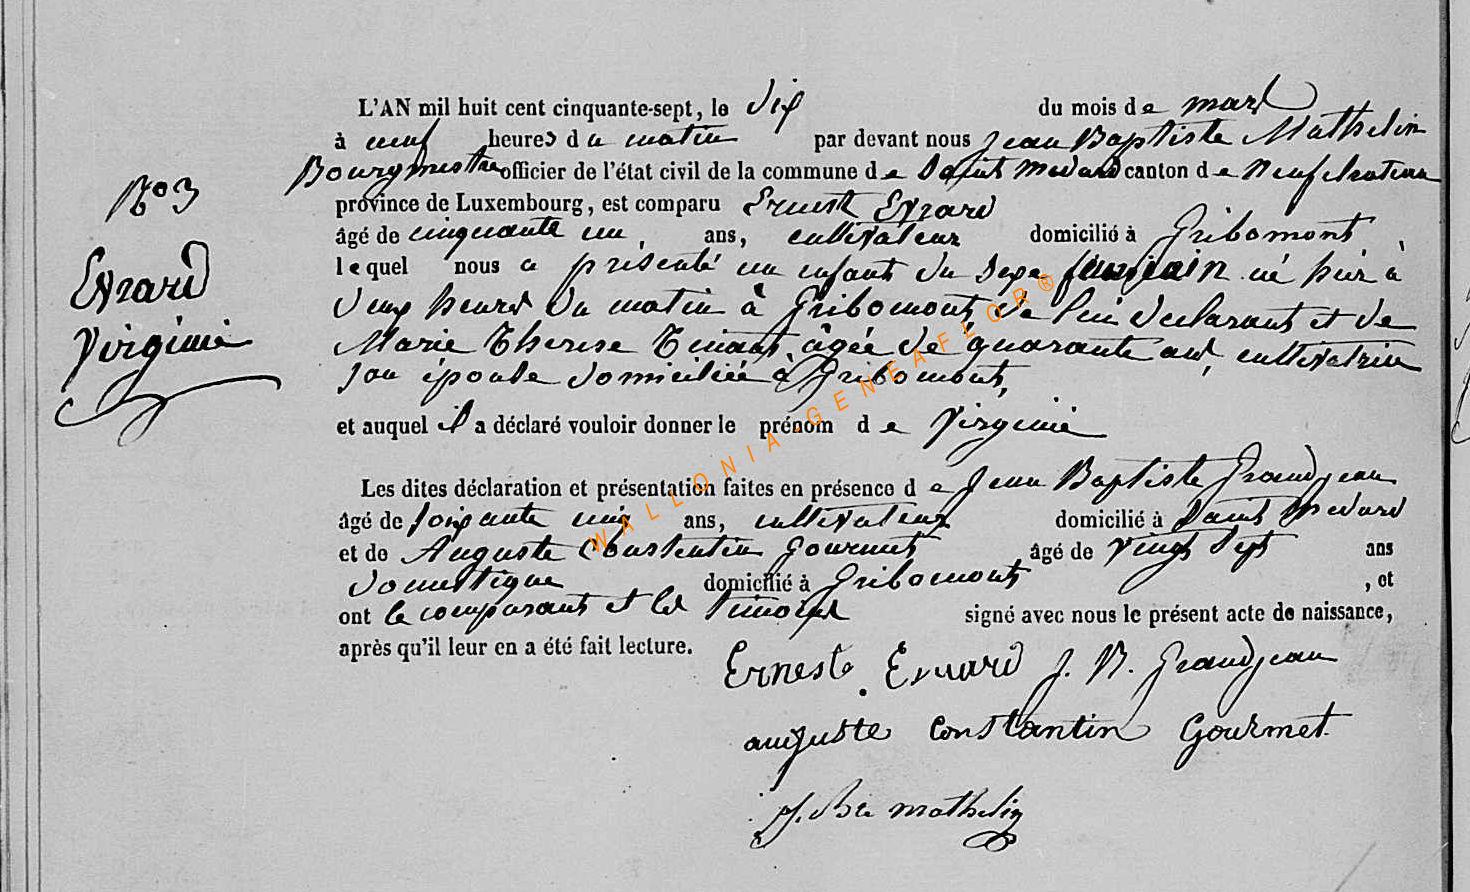 N° 3
Evrard
Virginie
L'AN mil huit cent cinquante-sept, le dix du mois de mars
à neuf heures du matin par devant nous Jean Baptiste Mathelin
Bourgmestre officier de l'état civil de la commune de Saint Médard canton de Neufchateau
province de Luxembourg, est comparu Ernest Evrard
âgé de cinquante un ans, cultivateur domicilié à Gribomont
lequel nous a présenté un enfant du sexe feminin né hier à
deux heures du matin à Gribomont, de lui déclarant et de
Marie Therese Tinant, âgée de quarante ans, cultivatrice
son épouse domiciliée à Gribomont,
et auquel il a déclaré vouloir donner le prénom de Virginie
Les dites déclaration et présentation faites en présence de Jean Baptiste Grandjean
âgé de soixante cinq ans, cultivateur domicilié à Saint Médard
et de Auguste Constentin Gourmet âgé de vingt sept ans
domestique domicilié à Gribomont , et
ont le comparant et les témoins signé avec nous le présent acte de naissance,
après qu'il leur en a été fait lecture.
Erneste Evrard J. B. Grandjean
auguste Constantin Gourmet.
J. Bte mathelin
WALLONIA-GENEAFLOR®